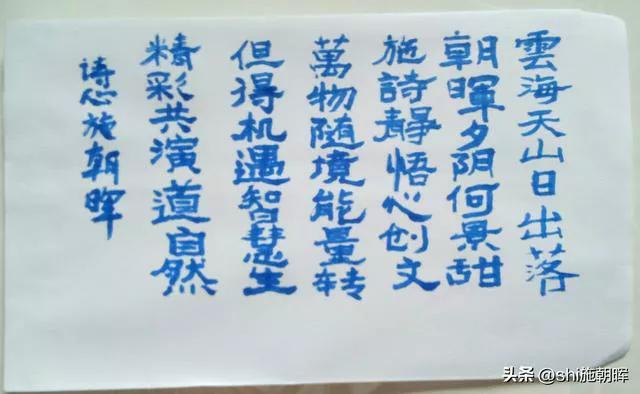 雲海天山日出落
朝暉夕阴何景甜
施詩靜悟心创文
萬物随境能量转
但得机遇智慧生
精彩共演道自然
诗心施朝暉
头条 @shi施朝晖